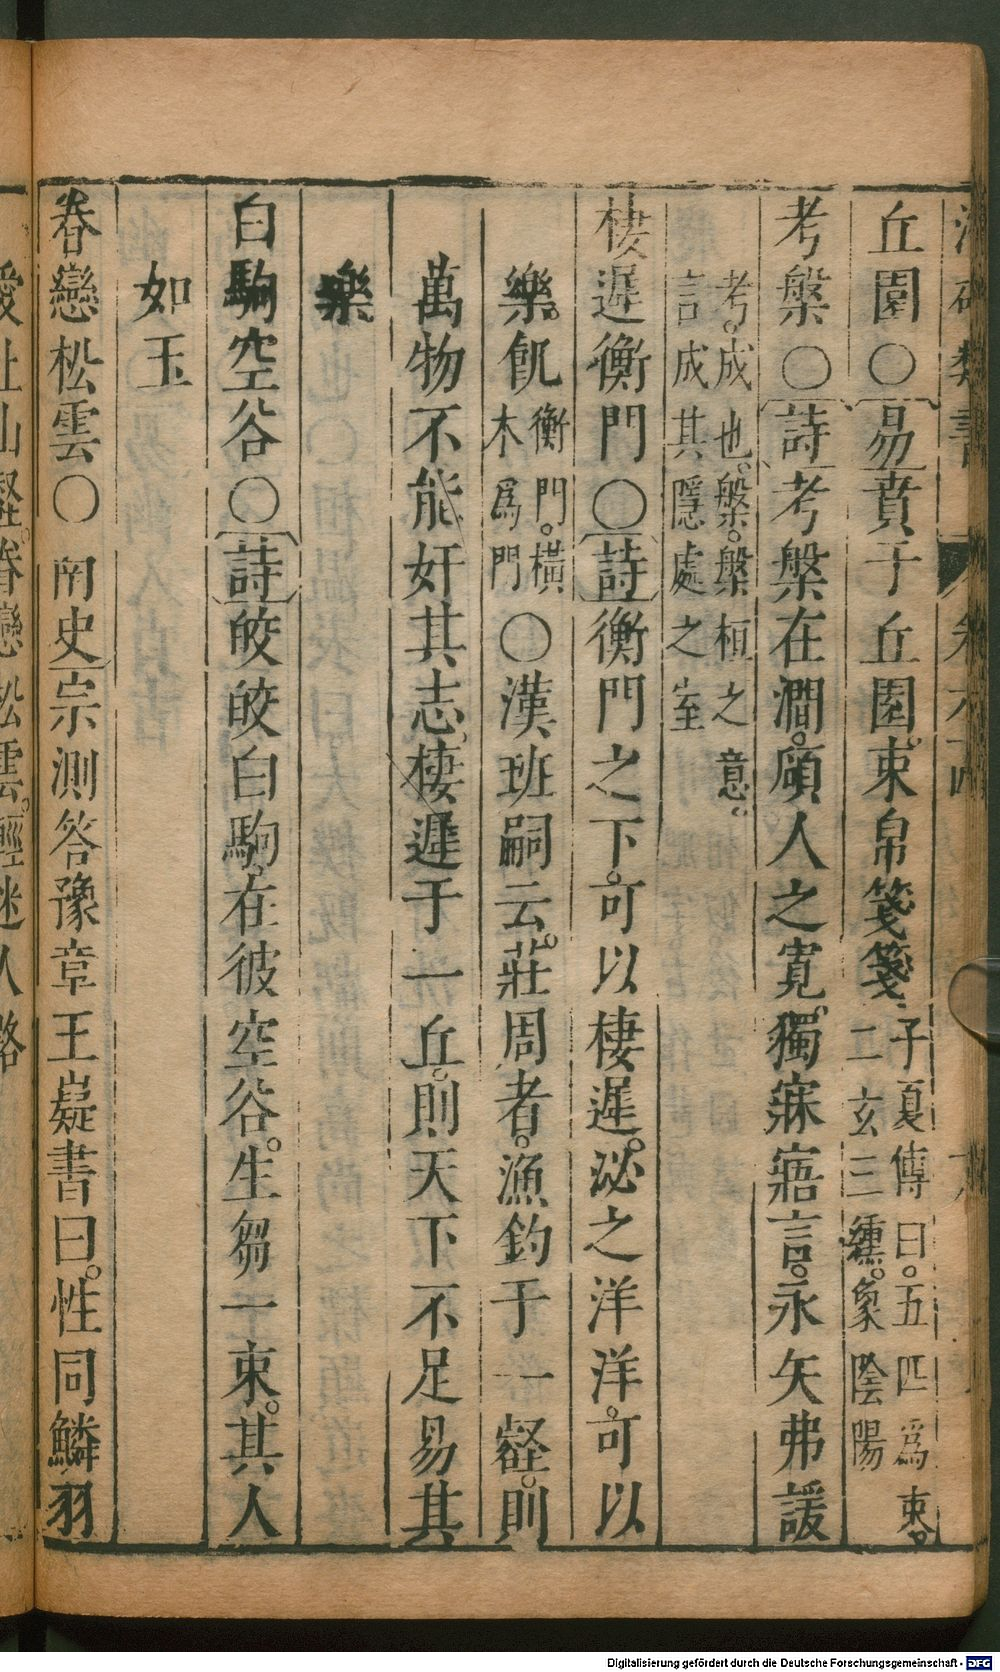 丘園〇易賁于丘園。束帛箋箋。子夏傳曰。五匹爲束。二玄三纁。象陰陽
考槃〇詩考槃在澗。碩人之寬。獨寐寤言。永矢弗諼
考。成也。槃。槃桓之意。言成其隱處之室
棲遲衡門〇詩衡門之下。可以棲遲。泌之洋洋。可以
樂飢衡門。橫木爲門〇漢班嗣云。莊周者。漁釣于一壑。則
萬物不能奸其志、棲遲于一丘。則天下不足易其
樂
白駒空谷〇詩皎皎白駒。在彼空谷。生芻一束。其人
如玉
眷戀松雲〇南史宗測答豫章王嶷書曰。性同鱗羽
愛止山壑。眷戀松雲。輕迷人路
Digitalisierung gefördert durch die Deutsche Forschungsgemeinschaft - DFG